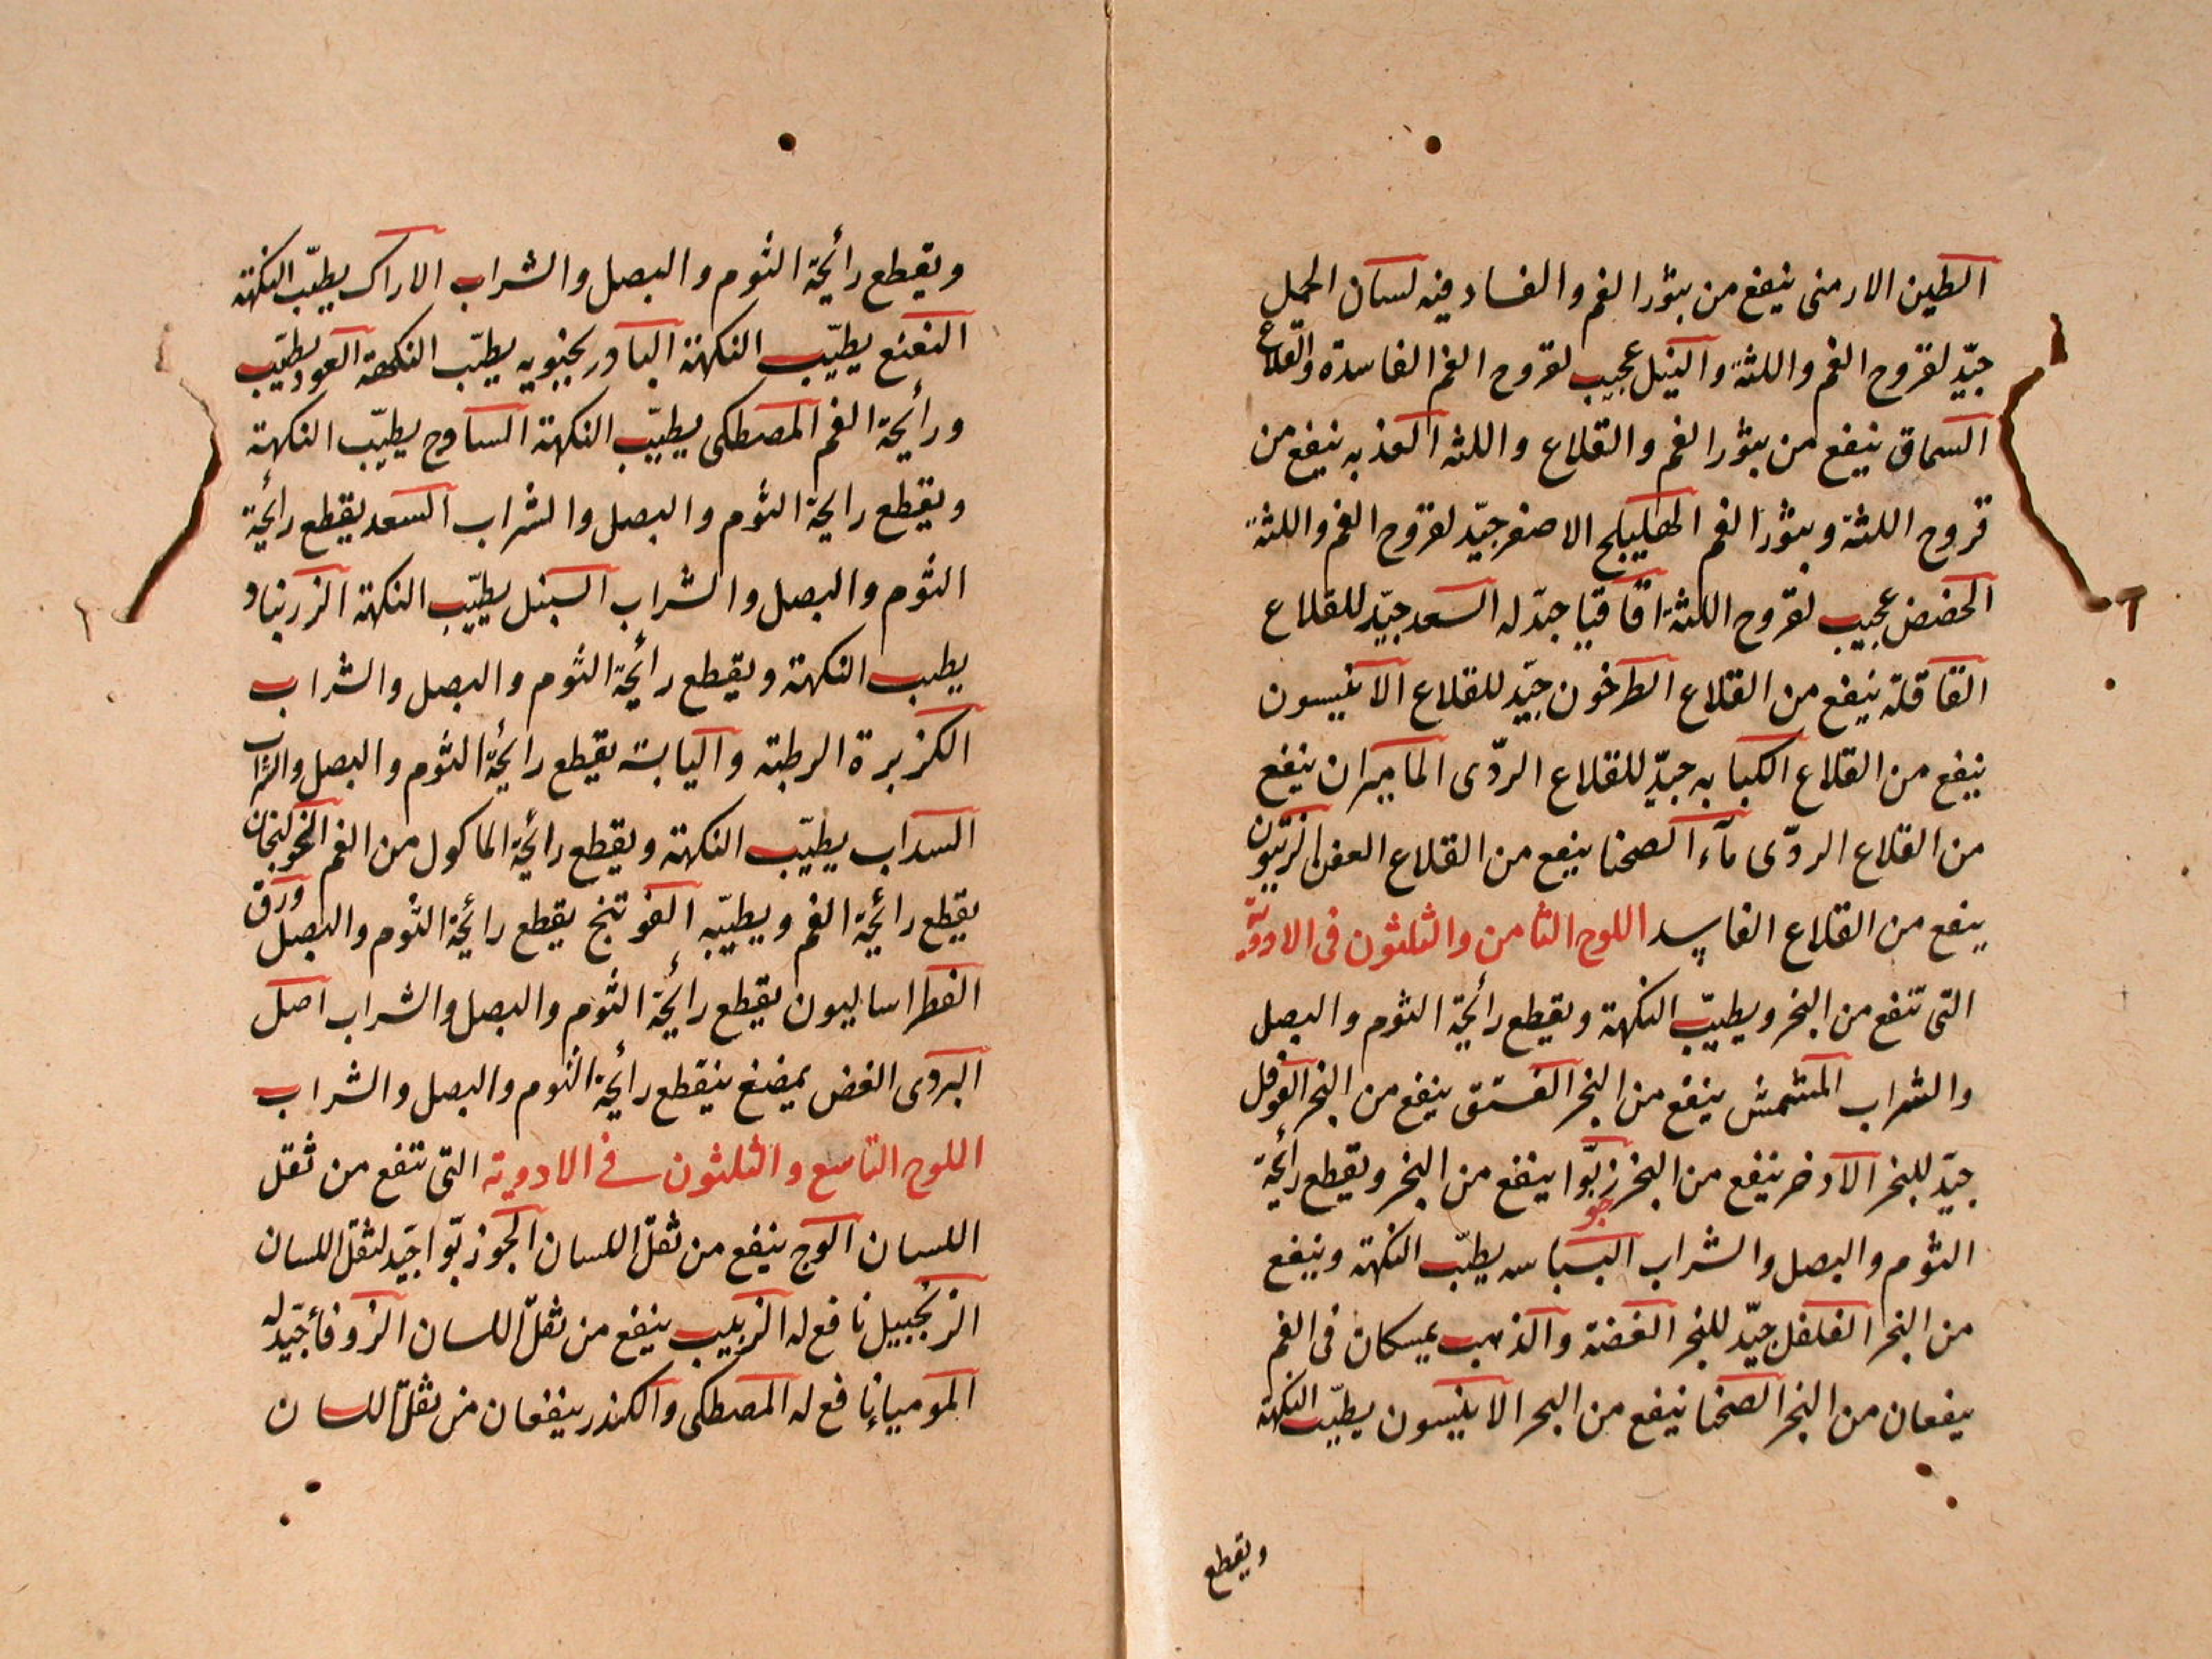 الطين الارمنى ينفع من بثور الفم والفساد فيه لسان الحمل
جيّد لقروح الفم واللثة والنيل عجيب لقروح الفم الفاسدة والقلاع
السماق ينفع من بثور الفم والقلاع واللثه العذبه ينفع من
قروح اللثة وبثور الفم الهليلج الاصفر جيّد لقروح الفم واللثة
الحضض عجيب لقروح اللثة اقاقيا جيّد له السعد جيّد للقلاع
القاقلة ينفع من القلاع الطرخون جيّد للقلاع الانيسون
ينفع من القلاع الكبابه جيّد للقلاع الردّى الماميران ينفع
من القلاع الردّى مآء الصحنا ينفع من القلاع العفن الزيتون
ينفع من القلاع الفاسد اللوح الثامن والثلثون فى الادوية
التى تنفع من البخر ويطيّب النكهة ويقطع رائحة الثوم والبصل
والشراب المشمش ينفع من البخر الفستق ينفع من البخر الفوفل
جيّد للبخر الاذخر ينفع من البخر جوزبوّا ينفع من البخر ويقطع رائحة
الثوم والبصل والشراب البسباسه يطيّب النكهة وينفع
من البخر الفلفل جيّد للبخر الفضة والذهب يمسكان فى الفم
ينفعان من البخر الصحنا ينفع من البخر الانيسون يطيّب النكهة
ويقطع
ويقطع رائحة الثوم والبصل والشراب الاراك يطيّب النكهة
النعنع يطيّب النكهة البادرنجبويه يطيّب النكهة العود يطيّب
ورائحة الفم المصطكى يطيّب النكهة الساذج يطيّب النكهة
ويقطع رايحة الثوم والبصل والشراب السعد يقطع رائحة
الثوم والبصل والشراب السنبل يطيّب النكهة الزرنباد
يطيب النكهة ويقطع رائحة الثوم والبصل والشراب
الكزبرة الرطبة واليابسة يقطع رائحة الثوم والبصل والشراب
السداب يطيّب النكهة ويقطع رائحة الماكول من الفم الخولنجان
يقطع رائحة الفم ويطيّبه الفوتنج يقطع رائحة الثوم والبصل ورق
الفطراساليون يقطع رائحة الثوم والبصل والشراب اصل
البردى الغض يمضغ ينقطع رائحة الثوم والبصل والشراب
اللوح التاسع والثلثون فى الادوية التى تنفع من ثقل
اللسان الوج ينفع من ثقل اللسان الجوزبوّا جيّد لثقل اللسان
الزنجبيل نافع له الزبيب ينفع من ثقل اللسان الزوفا جيّد له
الموميا نافع له المصطكى والكندر ينفعان من ثقل اللسان